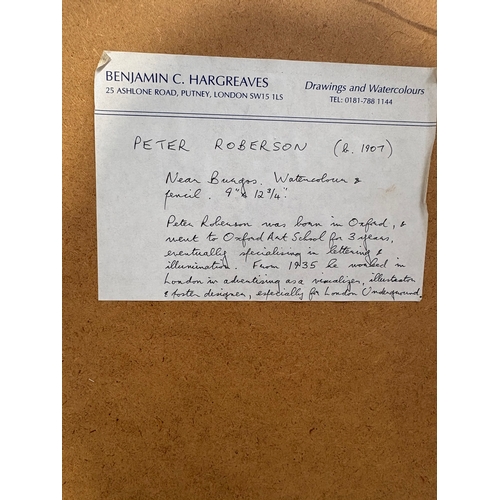 BENJAMIN C. HARGREAVES
25 ASHLONE ROAD, PUTNEY, LONDON SW15 1LS
Drawings and Watercolours
TEL: 0181-788 1144
PETER ROBERSON (b. 1907)
Near Burgos. Watercolour &
pencil. 9" x 12 3/4".
Peter Roberson was born in Oxford, &
went to Oxford Art School for 3 years,
eventually specialising in lettering &
illumination. From 1935 he worked in
London in advertising as a visualizer, illustrator
& poster designer, especially for London Underground